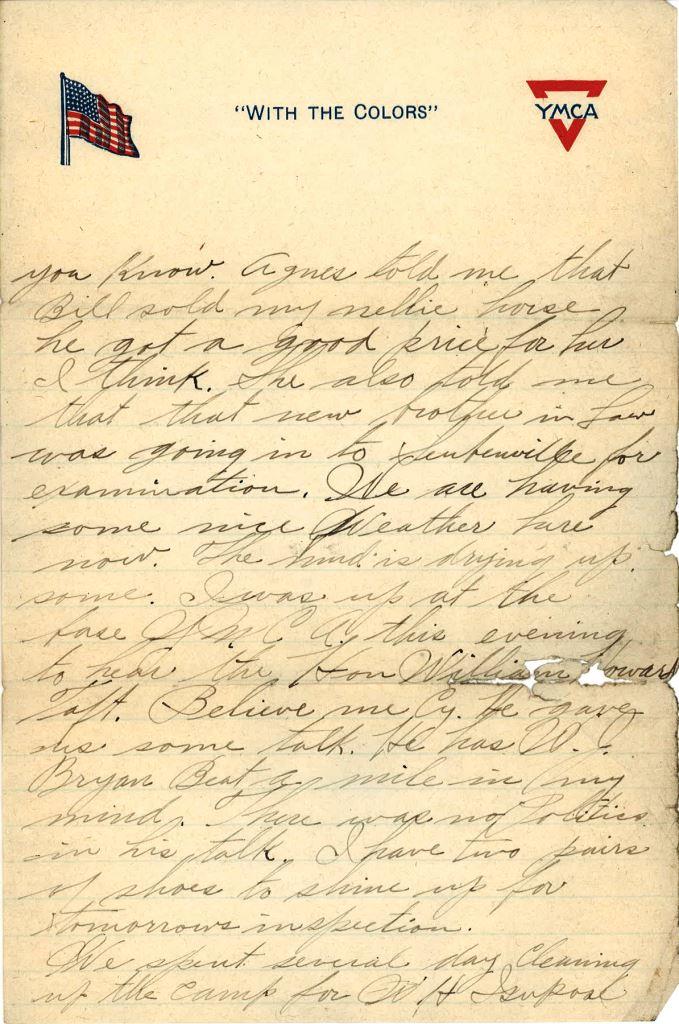 "WITH THE COLORS"
YMCA
you Know. Agnes told me that
Bill sold my nellie horse
he got a good price for her
I think. She also told me
that that new brother in Law
was going in to Steubenville for
examination. We are having
some nice Weather here
now. The mud is drying up
some. I was up at the
base Y M C A, this evening
to hear the Hon William Howard
Taft. Believe me Cy. he gave
us some talk. He has W. J.
Bryan Beat a mile in my
mind. There was no Politics
in his talk. I have two pairs
of shoes to shine up for
tomorrows inspection.
We spent several day cleaning
up the camp for W H I supose